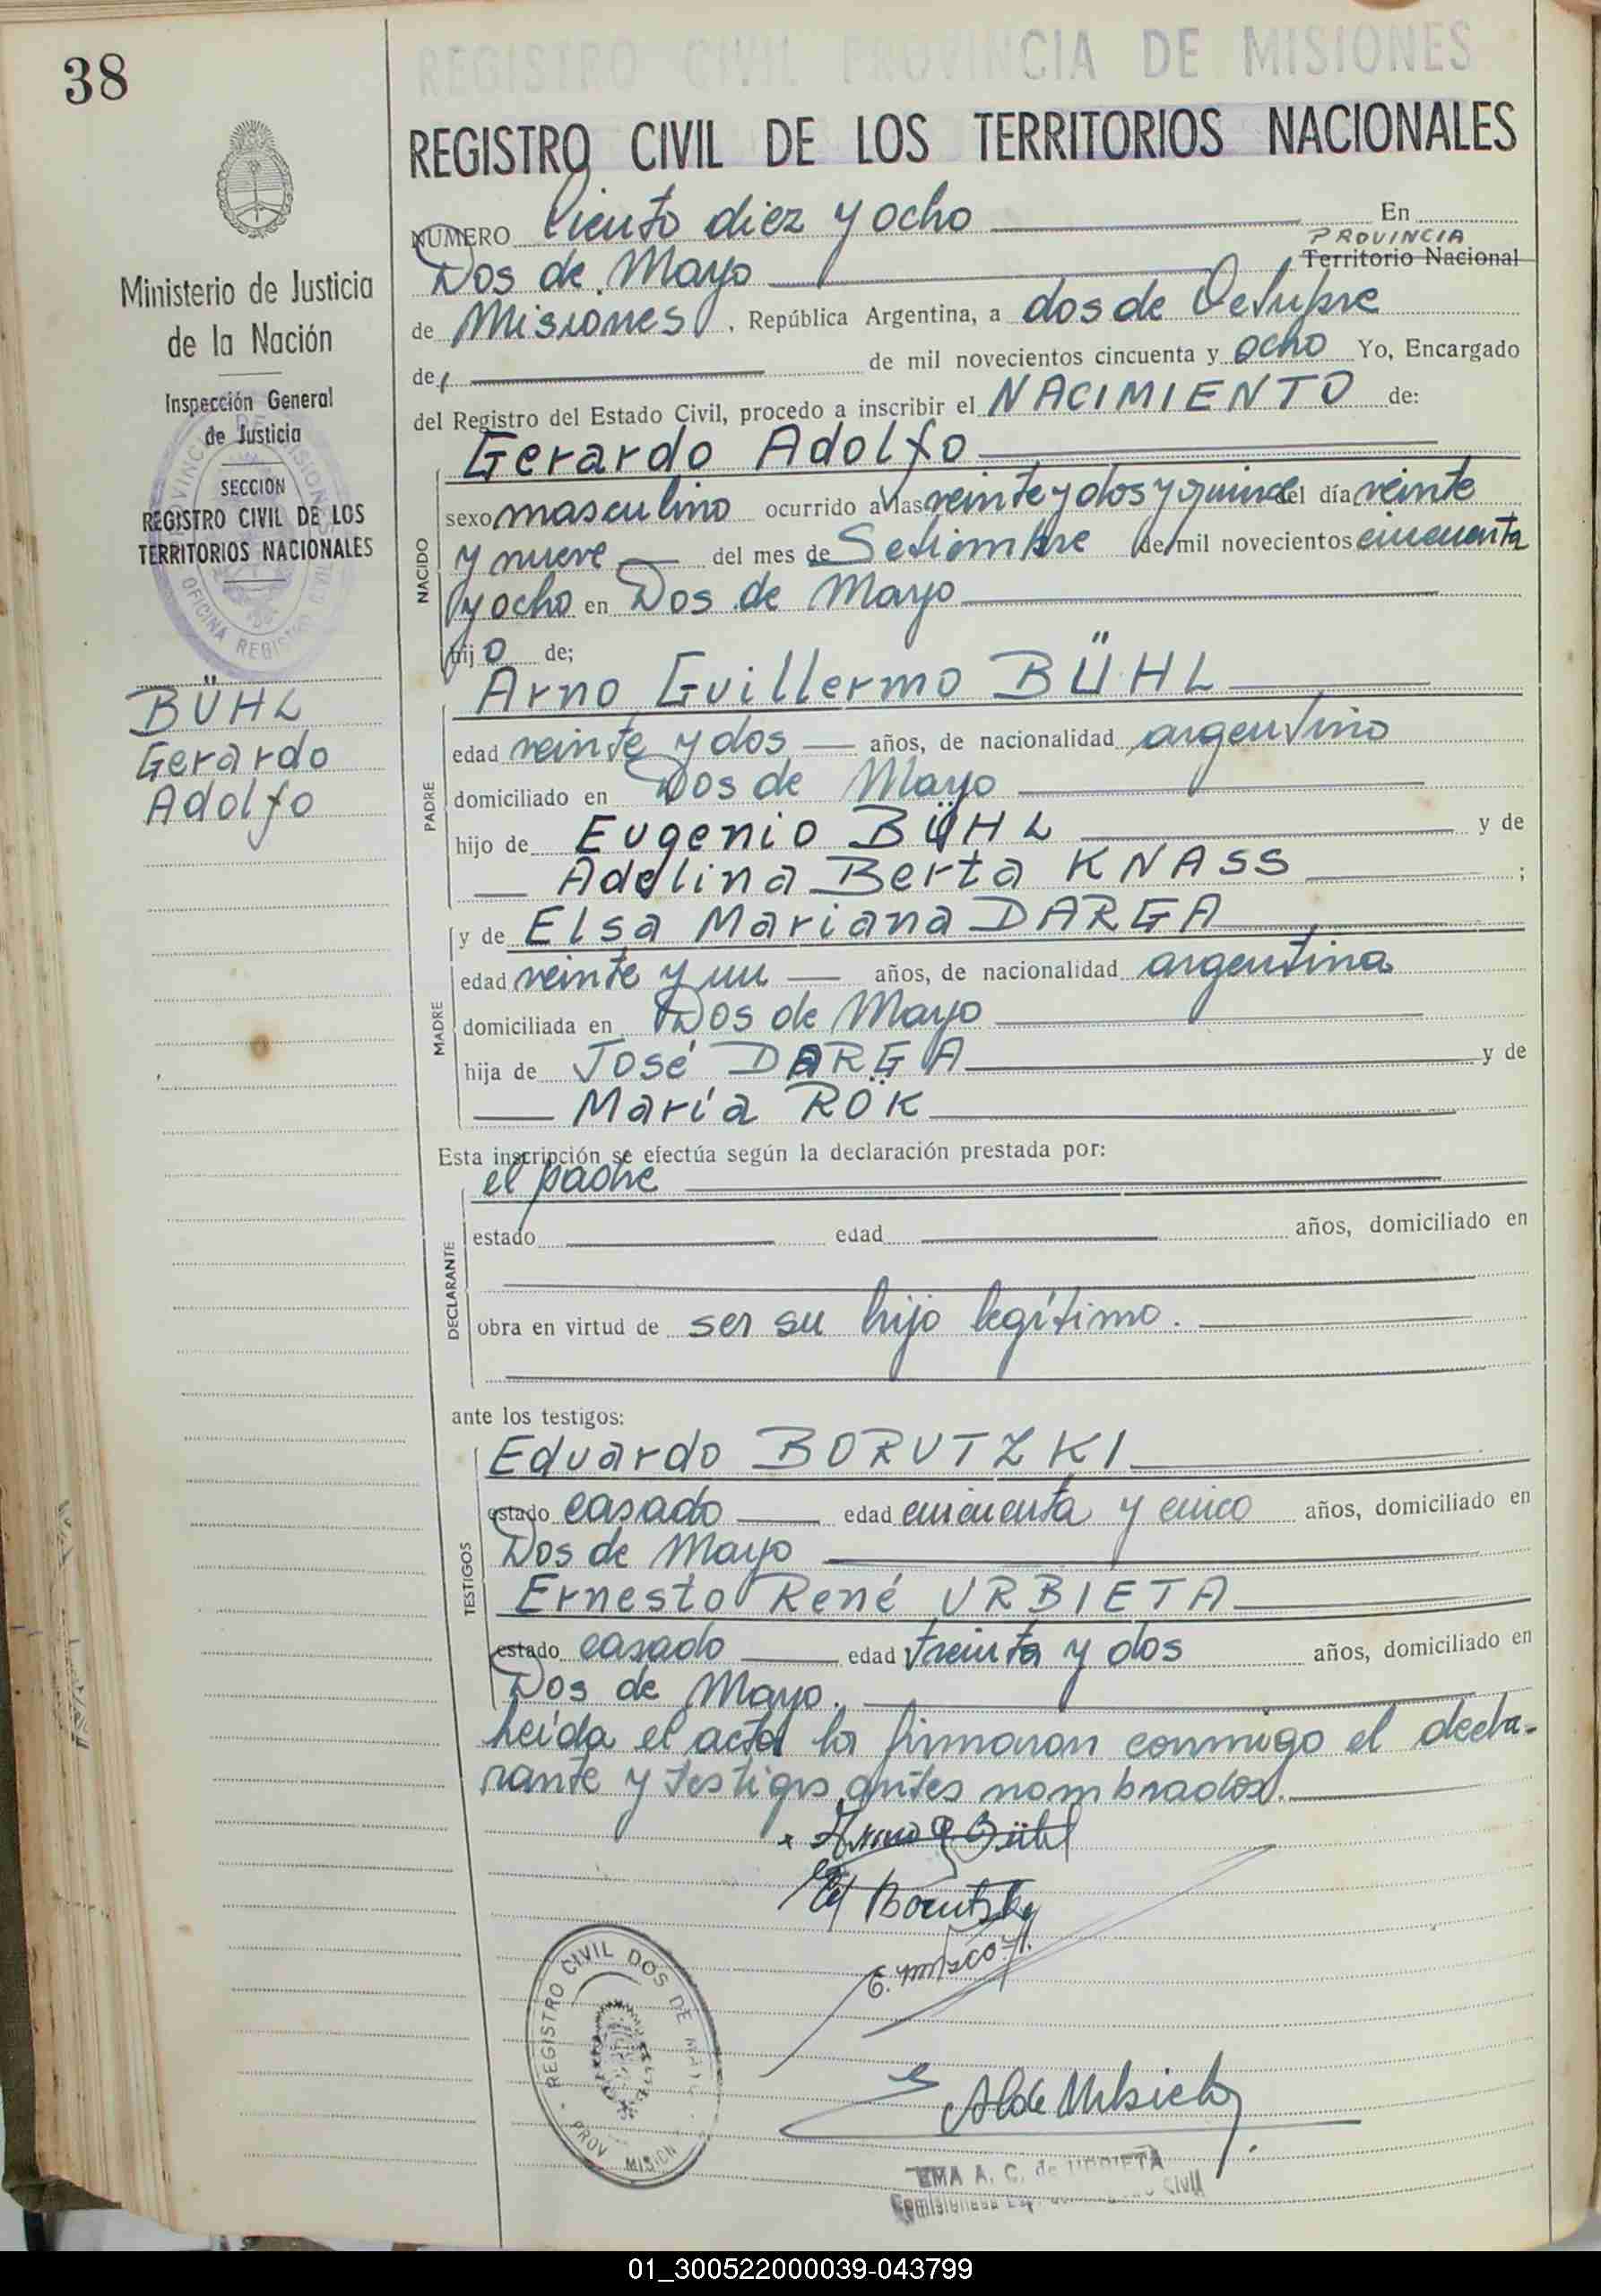 38
REGISTRO CIVIL PROVINCIA DE MISIONES
REGISTRO CIVIL DE LOS TERRITORIOS NACIONALES
Ministerio de Justicia
de la Nación
Inspección General
de Justicia
SECCIÓN
REGISTRO CIVIL DE LOS
TERRITORIOS NACIONALES
OFICINA REGISTRO CIVIL
BÜHL
Gerardo
Adolfo
NÚMERO Ciento diez y ocho En
Dos de Mayo PROVINCIA Territorio Nacional
de Misiones, República Argentina, a dos de Octubre
de de mil novecientos cincuenta y ocho Yo, Encargado
del Registro del Estado Civil, procedo a inscribir el NACIMIENTO de:
Gerardo Adolfo
NACIDO
sexo masculino ocurrido a las veinte y dos y quince del día veinte
y nueve del mes de Setiembre de mil novecientos cincuenta
y ocho en Dos de Mayo
hijo de;
Arno Guillermo BÜHL
PADRE
edad veinte y dos años, de nacionalidad argentino
domiciliado en Dos de Mayo
hijo de Eugenio BÜHL y de
Adelina Berta KNASS ;
y de Elsa Mariana DARGA
MADRE
edad veinte y un años, de nacionalidad argentina
domiciliada en Dos de Mayo
hija de José DARGA y de
María RÖK
Esta inscripción se efectúa según la declaración prestada por:
el padre
DECLARANTE
estado edad años, domiciliado en
obra en virtud de ser su hijo legítimo.
ante los testigos:
Eduardo BORUTZKI
TESTIGOS
estado casado edad cincuenta y cinco años, domiciliado en
Dos de Mayo
Ernesto René URBIETA
estado casado edad treinta y dos años, domiciliado en
Dos de Mayo.
Leída el acta la firmaron conmigo el decla-
rante y testigos antes nombrados.
Arno G Bühl
Ed Borutzky
REGISTRO CIVIL DOS DE MAYO
PROV MISION
EMA A. C. de URBIETA
Civil
01_300522000039-043799